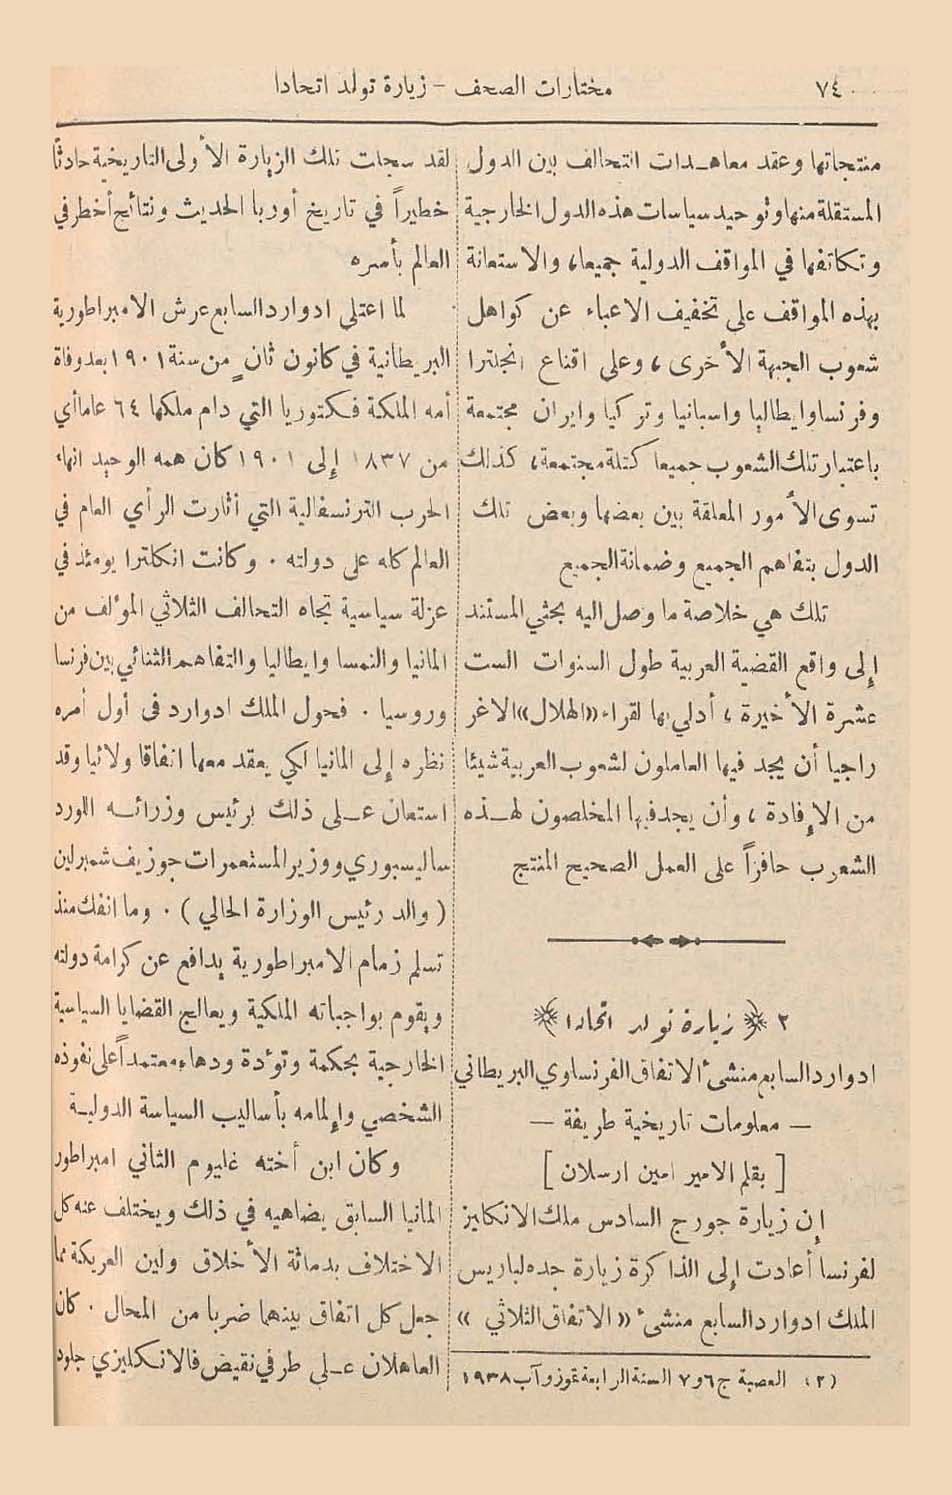 ٧٤٠
مختارات الصحف - زيارة تولد اتحادا
منتجاتها وعقد معاهـدات التحالف بين الدول
المستقلة منها وتوحيد سياسات هذه الدول الخارجية
وتكاتفها في المواقف الدولية جميعا، والاستعانة
بهذه المواقف على تخفيف الاعباء عن كواهل
شعوب الجبهة الأخرى، وعلى اقناع انجلترا
وفرنسا وايطاليا واسبانيا وتركيا وايران مجتمعة
باعتبار تلك الشعوب جميعا كتلة مجتمعة، كذلك
تسوى الأمور المعلقة بين بعضها وبعض تلك
الدول بتفاهم الجميع وضمانة الجميع
تلك هي خلاصة ما وصل اليه بحثي المستند
إلى واقع القضية العربية طول السنوات الست
عشرة الأخيرة، أدلي بها لقراء «الهلال» الاغر
راجيا أن يجد فيها العاملون لشعوب العربية شيئا
من الإفادة، وأن يجد فيها المخلصون لهـذه
الشعوب حافزاً على العمل الصحيح المنتج
٢ ﴿ زيارة تولد اتحادا ﴾
ادوارد السابع منشىء الاتفاق الفرنساوي البريطاني
— معلومات تاريخية طريفة —
[ بقلم الامير امين ارسلان ]
إن زيارة جورج السادس ملك الانكليز
لفرنسا أعادت إلى الذاكرة زيارة جده لباريس
الملك ادوارد السابع منشىء «الاتفاق الثلاثي»
(٢) العصبة ج٦و٧ السنة الرابعة تموز وآب ١٩٣٨
لقد سجلت تلك الزيارة الأولى التاريخية حادثًا
خطيراً في تاريخ أوربا الحديث ونتائج أخطر في
العالم بأسره
لما اعتلى ادوارد السابع عرش الامبراطورية
البريطانية في كانون ثانٍ من سنة ١٩٠١ بعد وفاة
أمه الملكة فكتوريا التي دام ملكها ٦٤ عاما أي
من ١٨٣٧ إلى ١٩٠١ كان همه الوحيد انهاء
الحرب الترنسفالية التي أثارت الرأي العام في
العالم كله على دولته . وكانت انكلترا يومئذ في
عزلة سياسية تجاه التحالف الثلاثي المؤلف من
المانيا والنمسا وايطاليا والتفاهم الثنائي بين فرنسا
وروسيا . فحول الملك ادوارد في أول أمره
نظره إلى المانيا لكي يعقد معها اتفاقا ولائيا وقد
استعان عـلى ذلك برئيس وزرائـه اللورد
ساليسبوري ووزير المستعمرات جوزيف شمبرلين
(والد رئيس الوزارة الحالي) . وما انفك منذ
تسلم زمام الامبراطورية يدافع عن كرامة دولته
ويقوم بواجباته الملكية ويعالج القضايا السياسية
الخارجية بحكمة وتؤدة ودهاء معتمداً على نفوذه
الشخصي وإلمامه بأساليب السياسة الدوليـة
وكان ابن أخته غليوم الثاني امبراطور
المانيا السابق يضاهيه في ذلك ويختلف عنه كل
الاختلاف بدماثة الأخلاق ولين العريكة مما
جعل كل اتفاق بينهما ضربا من المحال . كان
العاهلان عـلى طرفي نقيض فالانكليزي جلود